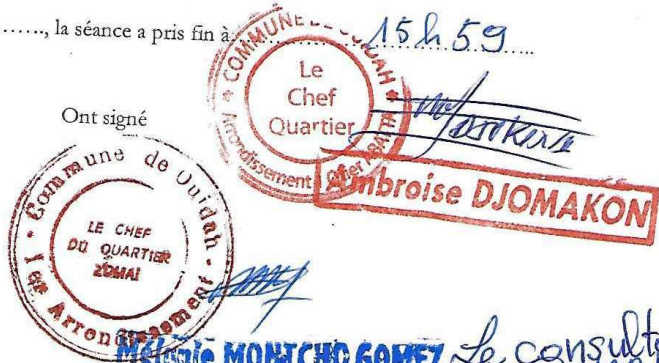 ......, la séance a pris fin à 15h59
Ont signé
COMMUNE DE OUIDAH
Le
Chef
Quartier
Arrondissement
Ambroise DJOMAKON
Commune de Ouidah - 1er Arrondissement -
LE CHEF
DU QUARTIER
ZOMAI
Mélanie MONTCHO GOMEZ
Le consulte